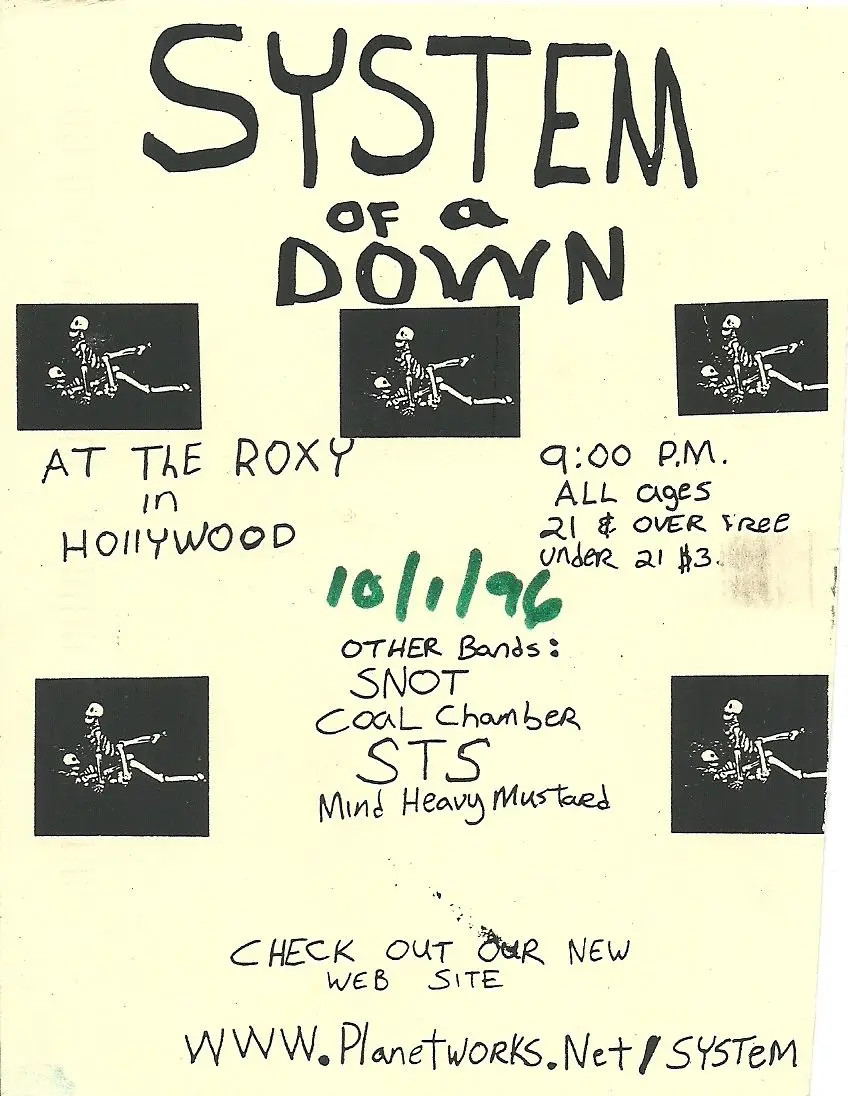 SYSTEM
OF a
DOWN
AT ThE ROXY
in
HOllYWOOD
9:00 P.M.
ALL ages
21 & OVER FRee
UndeR 21 $3.
10/1/96
OTHER Bands:
SNOT
COaL ChambeR
STS
Mind Heavy MustaRd
CHECK OUT OUR NEW
WEB SITE
WWW.PlanetwORKS.Net/SYSTeM